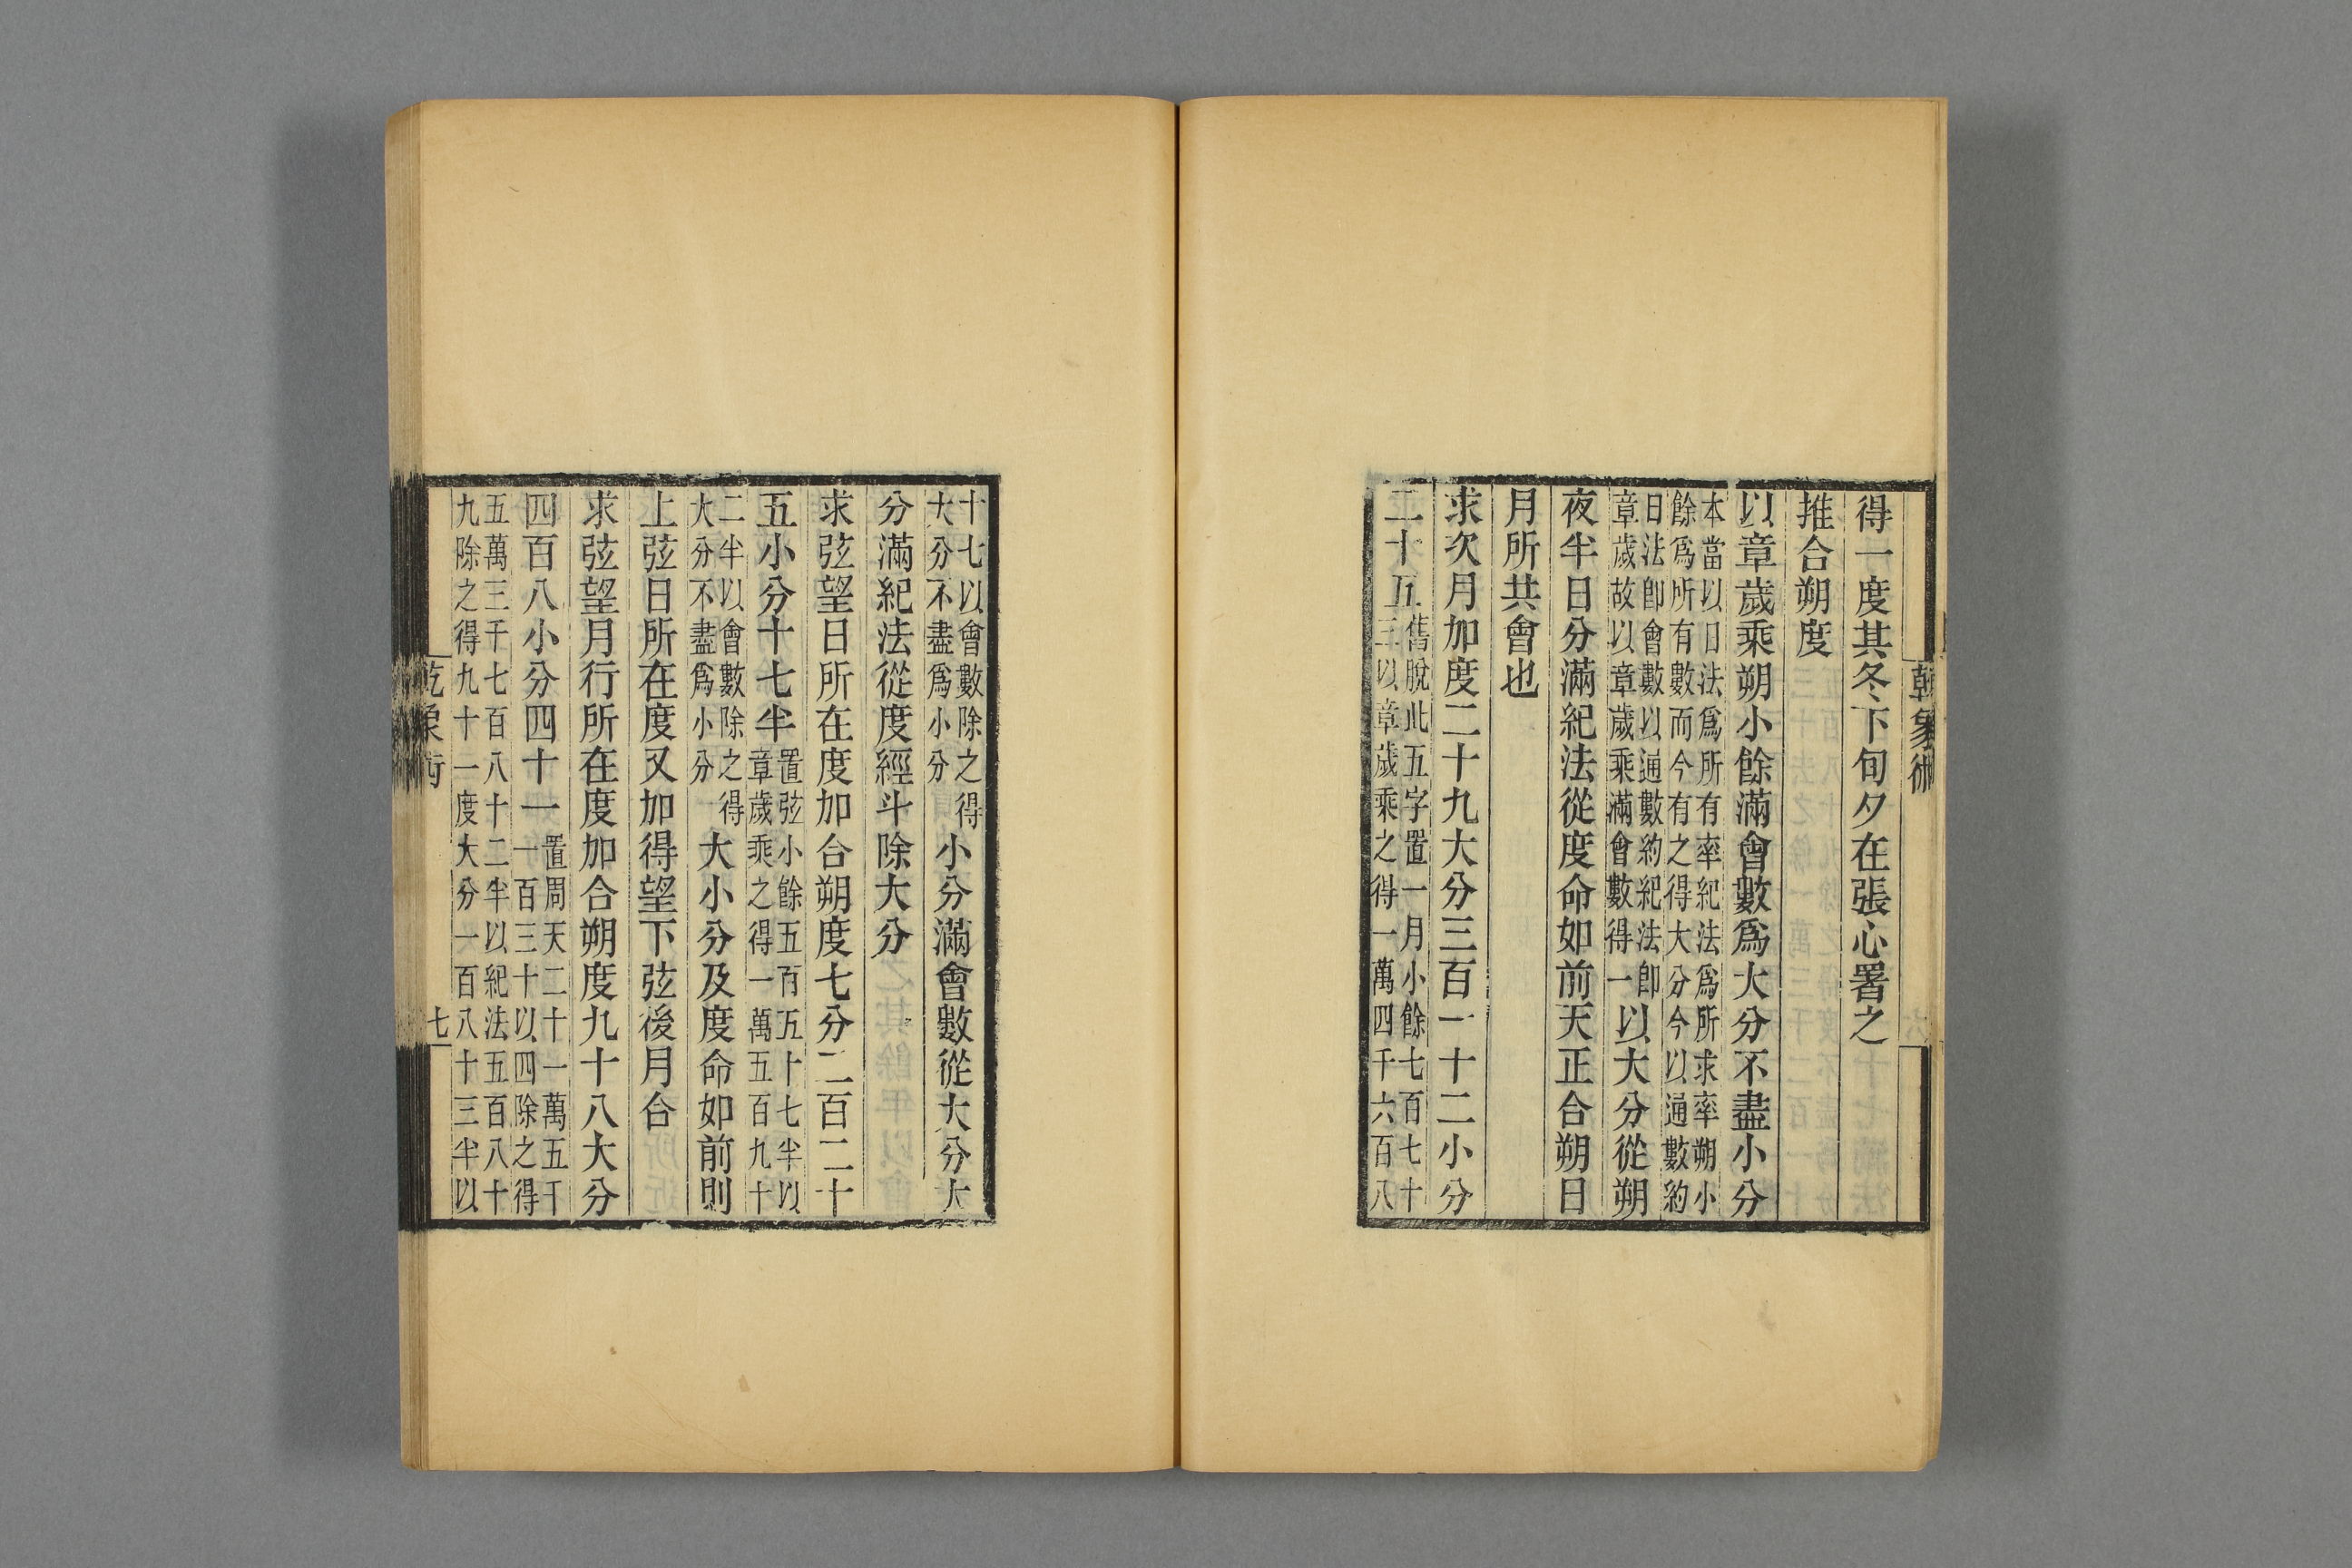 乾象術
得一度其冬下旬夕在張心署之
推合朔度
以章歲乘朔小餘滿會數爲大分不盡小分
本當以日法爲所有率紀法爲所求率朔小
餘爲所有數而今有之得大分今以通數約
日法卽會數以通數約紀法卽
章歲故以章歲乘滿會數得一
以大分從朔
夜半日分滿紀法從度命如前天正合朔日
月所共會也
求次月加度二十九大分三百一十二小分
二十五
舊脫此五字置一月小餘七百七十
三以章歲乘之得一萬四千六百八
十七以會數除之得
大分不盡爲小分
小分滿會數從大分大
分滿紀法從度經斗除大分
求弦望日所在度加合朔度七分二百二十
五小分十七半
置弦小餘五百五十七半以
章歲乘之得一萬五百九十
二半以會數除之得
大分不盡爲小分
大小分及度命如前則
上弦日所在度又加得望下弦後月合
求弦望月行所在度加合朔度九十八大分
四百八小分四十一
置周天二十一萬五千
一百三十以四除之得
五萬三千七百八十二半以紀法五百八十
九除之得九十一度大分一百八十三半以
乾象術
七